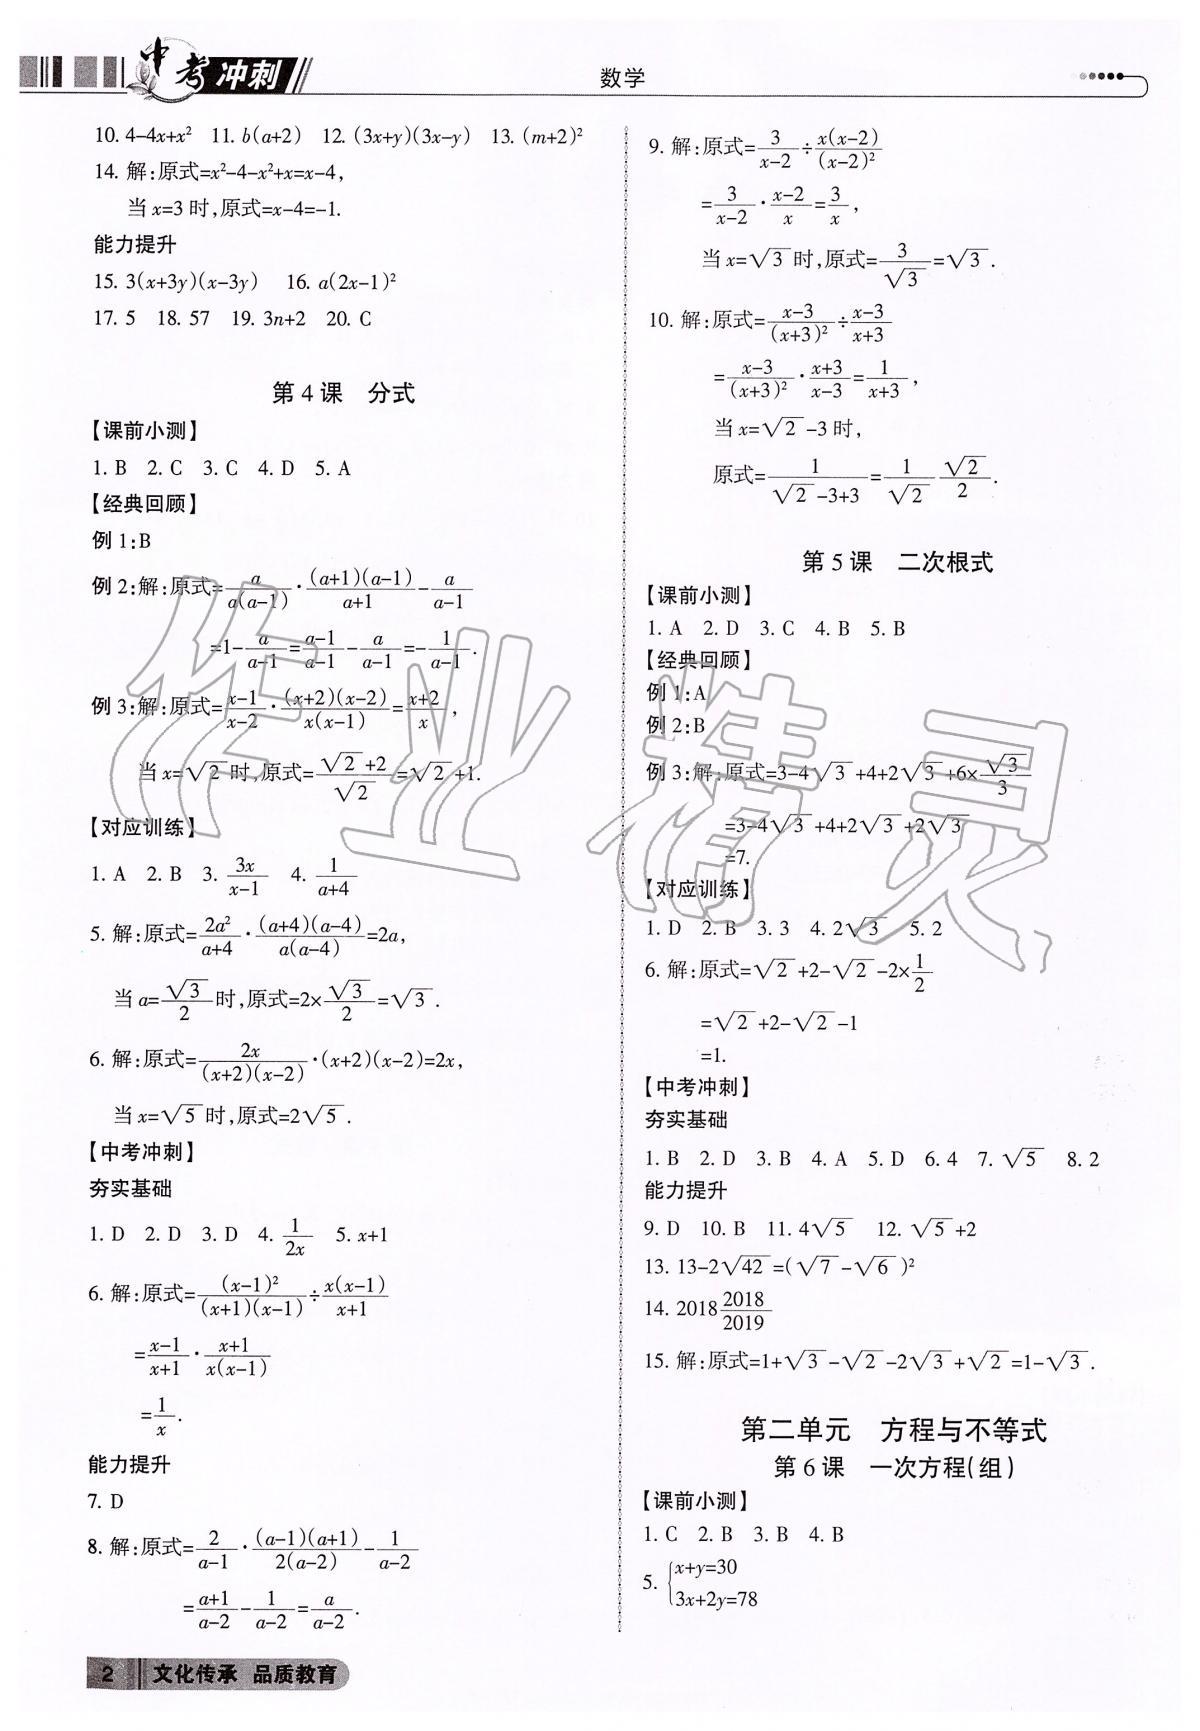 中考冲刺
数学
10. 4-4x+x² 11. b(a+2) 12. (3x+y)(3x-y) 13. (m+2)²
14. 解:原式=x²-4-x²+x=x-4,
当 x=3 时,原式=x-4=-1.
能力提升
15. 3(x+3y)(x-3y) 16. a(2x-1)²
17. 5 18. 57 19. 3n+2 20. C
第 4 课 分式
【课前小测】
1. B 2. C 3. C 4. D 5. A
【经典回顾】
例 1:B
例 2:解:原式=a/(a(a-1))·((a+1)(a-1))/(a+1)-a/(a-1)
=1-a/(a-1)=(a-1)/(a-1)-a/(a-1)=-1/(a-1).
例 3:解:原式=(x-1)/(x-2)·((x+2)(x-2))/(x(x-1))=(x+2)/x,
当 x=√2 时,原式=(√2+2)/√2=√2+1.
【对应训练】
1. A 2. B 3. 3x/(x-1) 4. 1/(a+4)
5. 解:原式=2a²/(a+4)·((a+4)(a-4))/(a(a-4))=2a,
当 a=√3/2 时,原式=2×√3/2=√3.
6. 解:原式=2x/((x+2)(x-2))·(x+2)(x-2)=2x,
当 x=√5 时,原式=2√5.
【中考冲刺】
夯实基础
1. D 2. D 3. D 4. 1/(2x) 5. x+1
6. 解:原式=(x-1)²/((x+1)(x-1))÷(x(x-1))/(x+1)
=(x-1)/(x+1)·(x+1)/(x(x-1))
=1/x.
能力提升
7. D
8. 解:原式=2/(a-1)·((a-1)(a+1))/(2(a-2))-1/(a-2)
=(a+1)/(a-2)-1/(a-2)=a/(a-2).
9. 解:原式=3/(x-2)÷(x(x-2))/(x-2)²
=3/(x-2)·(x-2)/x=3/x,
当 x=√3 时,原式=3/√3=√3.
10. 解:原式=(x-3)/(x+3)²÷(x-3)/(x+3)
=(x-3)/(x+3)²·(x+3)/(x-3)=1/(x+3),
当 x=√2-3 时,
原式=1/(√2-3+3)=1/√2 √2/2.
第 5 课 二次根式
【课前小测】
1. A 2. D 3. C 4. B 5. B
【经典回顾】
例 1:A
例 2:B
例 3:解:原式=3-4√3+4+2√3+6×√3/3
=3-4√3+4+2√3+2√3
=7.
【对应训练】
1. D 2. B 3. 3 4. 2√3 5. 2
6. 解:原式=√2+2-√2-2×1/2
=√2+2-√2-1
=1.
【中考冲刺】
夯实基础
1. B 2. D 3. B 4. A 5. D 6. 4 7. √5 8. 2
能力提升
9. D 10. B 11. 4√5 12. √5+2
13. 13-2√42=(√7-√6)²
14. 2018 2018/2019
15. 解:原式=1+√3-√2-2√3+√2=1-√3.
第二单元 方程与不等式
第 6 课 一次方程(组)
【课前小测】
1. C 2. B 3. B 4. B
5. {x+y=30
3x+2y=78
2 文化传承 品质教育
作业精灵